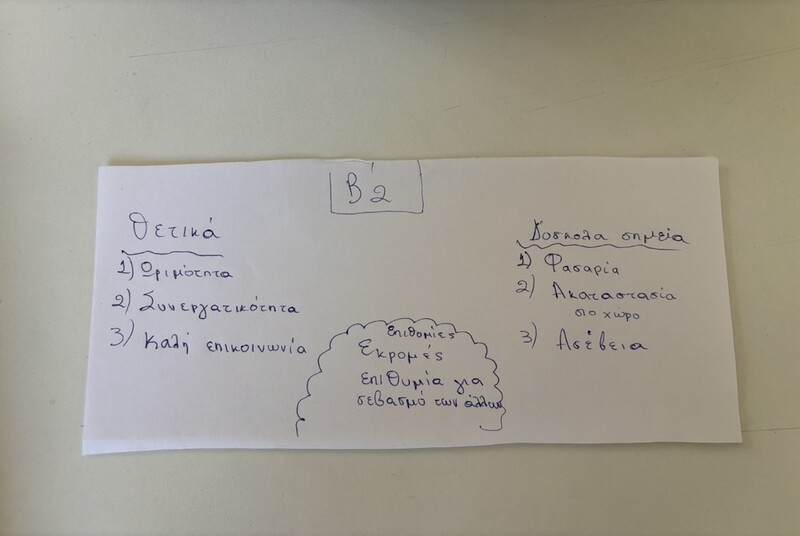 Β'2
Θετικά
1) Ωριμότητα
2) Συνεργατικότητα
3) Καλή επικοινωνία
Επιθυμίες
Εκρομές
επιθυμία για
σεβασμό των άλλων
Δύσκολα σημεία
1) Φασαρία
2) Ακαταστασία
στο χώρο
3) Ασέβεια